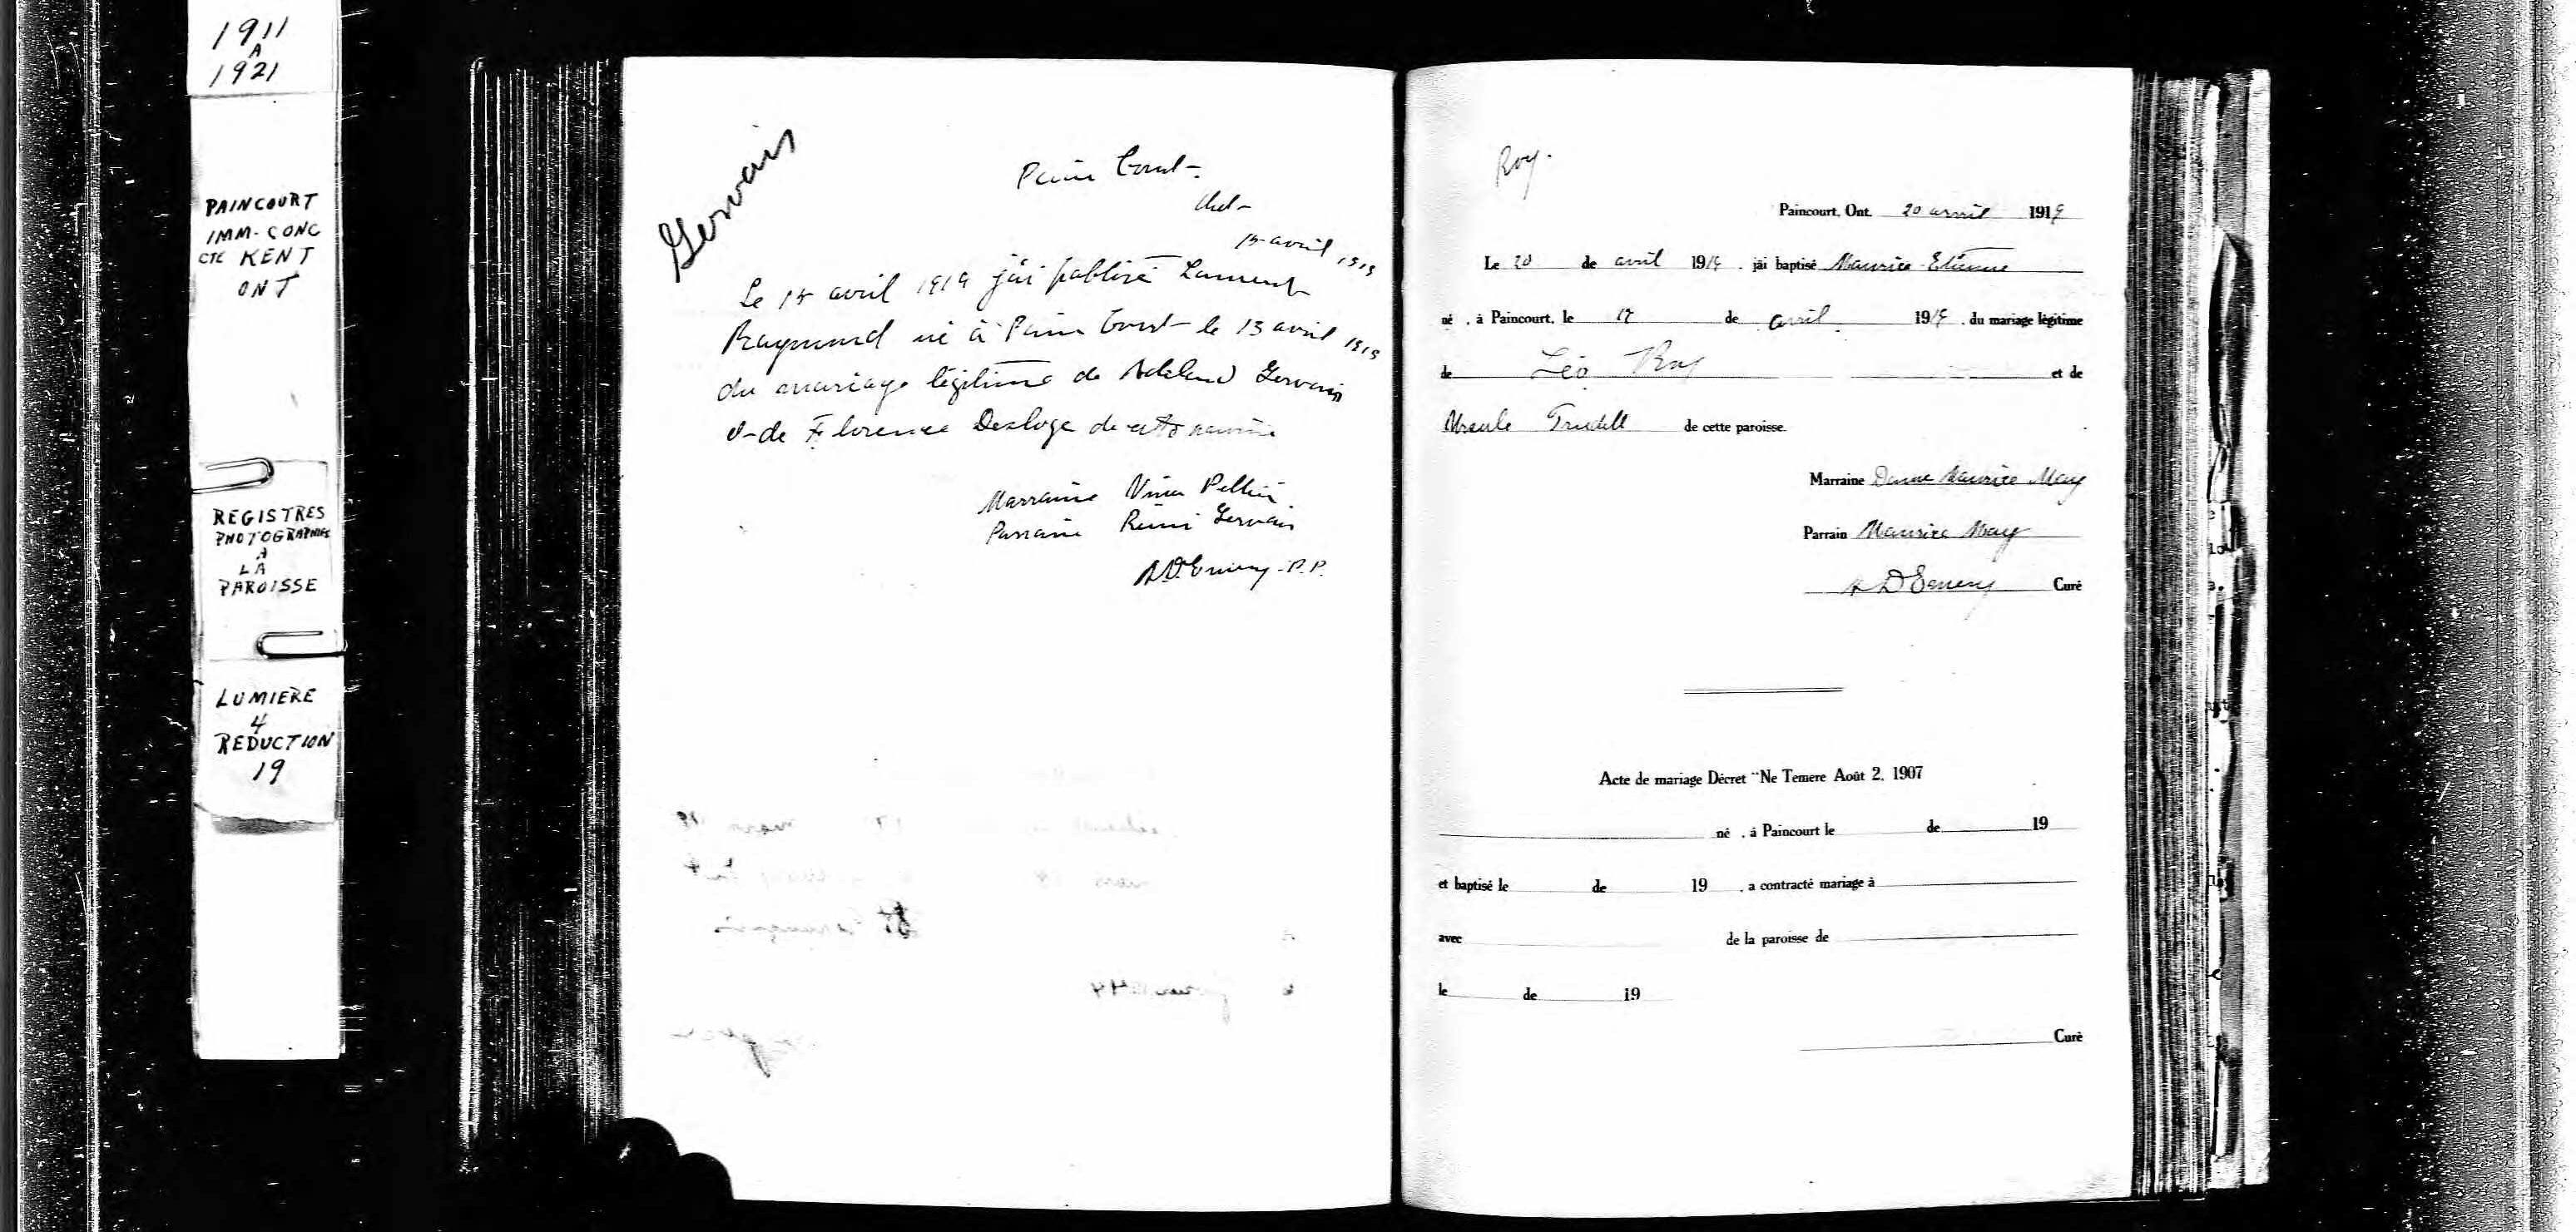 1911
A
1921
PAINCOURT
IMM-CONC
CTE KENT
ONT
REGISTRES
PHOTOGRAPHIES
A
LA
PAROISSE
LUMIERE
4
REDUCTION
19
Gervais
Pain Court
avril 1919
Le avril 1919 j'ai Laurent
Raymond né à Pain Court le 13 avril 1919
du mariage légitime de Adelard Gervais
et de Florence Desloge de cette paroisse
Marraine Vina
Parrain Rémi Gervais
A.D. Emery P.P.
Roy.
Paincourt, Ont. 20 avril 1919
Le 20 de avril 1919 , jài baptisé Maurice-Etienne
né , à Paincourt, le de avril 1919 , du mariage légitime
de Léo Roy et de
Ursule Trudell de cette paroisse.
Marraine Dame Maurice May
Parrain Maurice May
A D Emery Curé
Acte de mariage Décret "Ne Temere Août 2, 1907
né , à Paincourt le de 19
et baptisé le de 19 , a contracté mariage à
avec de la paroisse de
le de 19
Curé